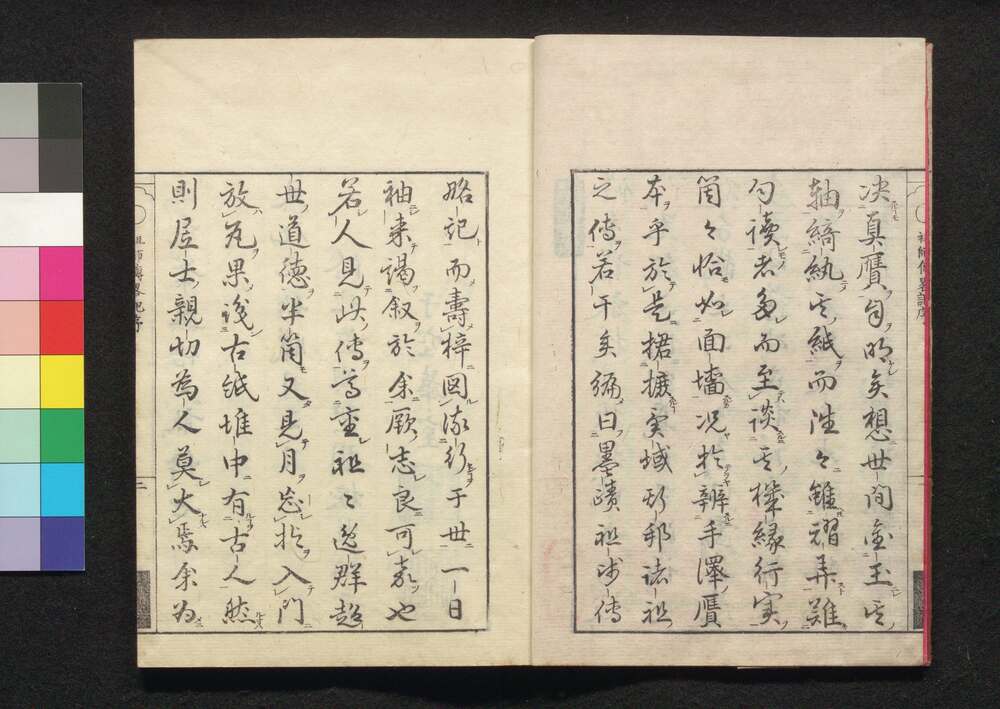 决真贋自明矣想世間金玉其
軸綺紈其紙而往々雖褶弄難
句讀者多而至談其機縁行実
箇々恰如面墻况於辨手澤贋
本乎於是捃摭実域所邦諸祖
之傳若干矣編曰墨蹟祖师傳
畧記而壽梓図流行于世一日
袖来謁叙於余厥志良可嘉也
若人見此傳尊重祖々逸群超
世道德半箇又見月忘指入門
放瓦果識古紙堆中有古人然
則居士親切為人莫大焉余為